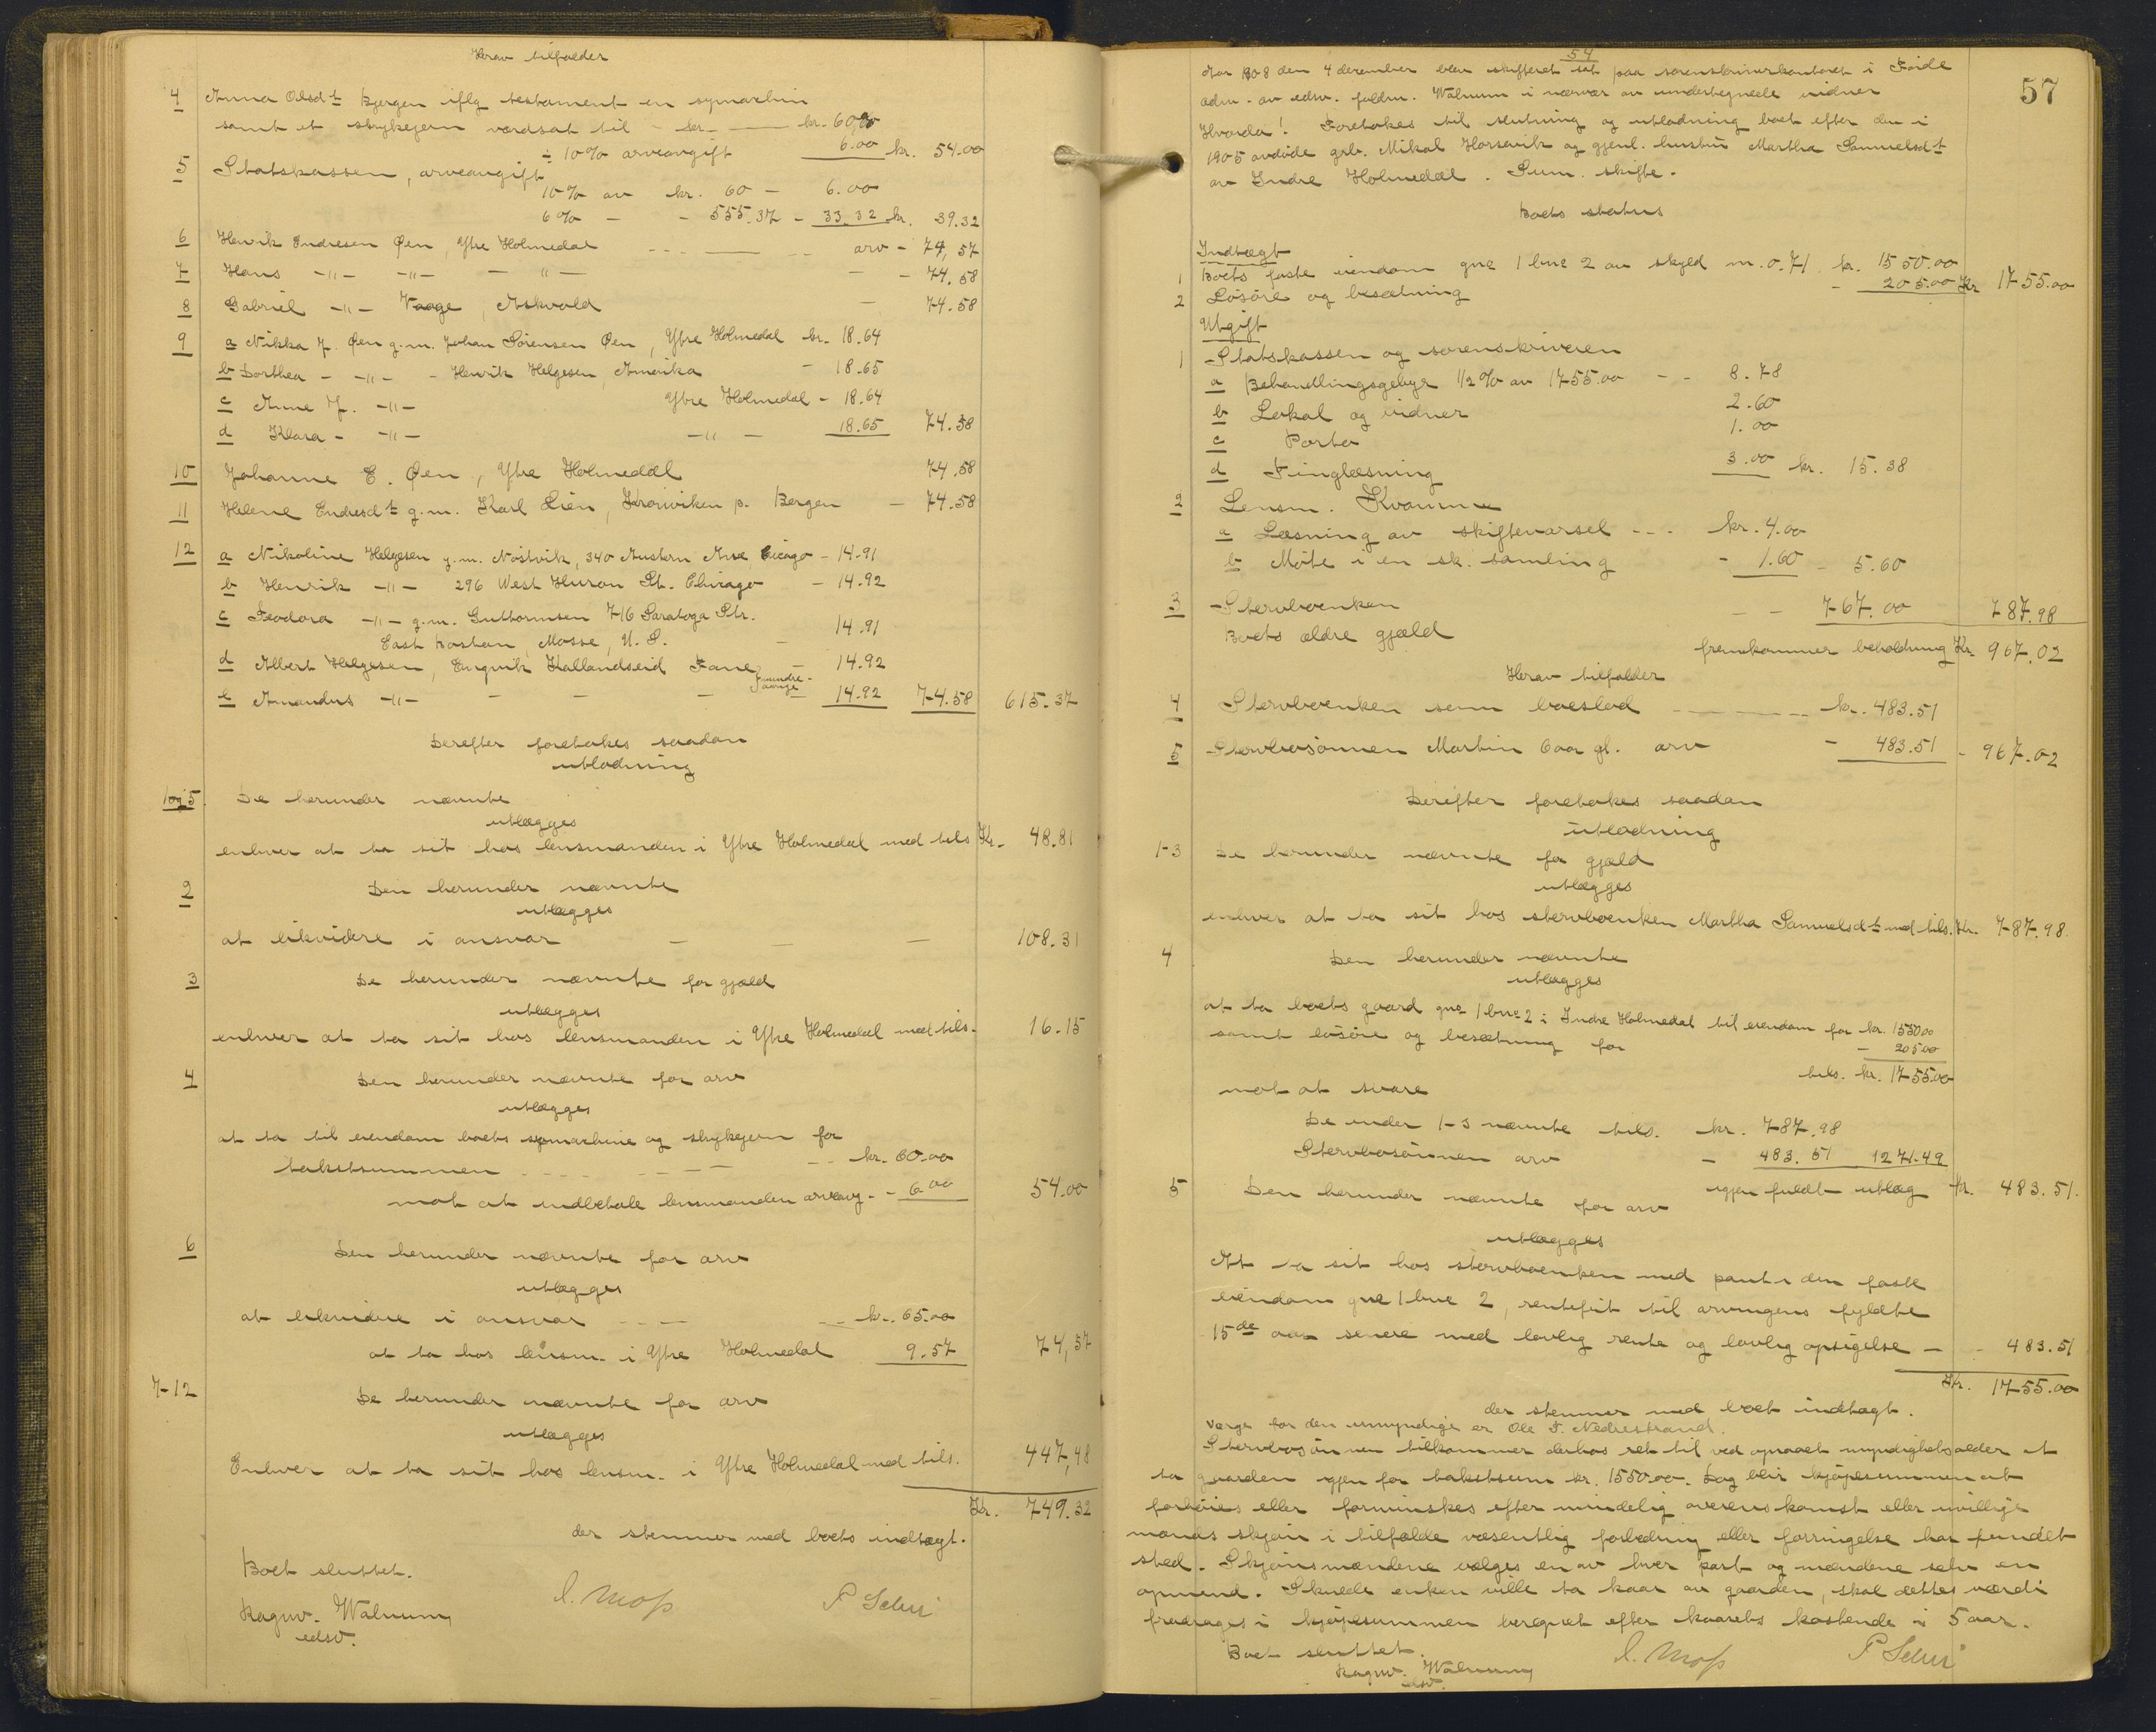 Herav tilfalder
4 Anna Olsdt Bjergen iflg testament en symaskin
samt et strykejern værdsat til - kr. 60,00
÷ 10% arveavgift 6.00 kr. 54.00
5 Statskassen, arveavgift
10% av kr. 60 - 6.00
6% - - 555.37 - 33.32 kr. 39.32
6 Henrik Endresen Øen, Ytre Holmedal arv - 74,57
7 Hans -"- -"- - "- - - 74.58
8 Gabriel -"- Vaage, Askvold - 74.58
9 a Nikka J. Øen g.m. Johan Sörensen Øen, Ytre Holmedal kr. 18.64
b Dorthea - -"- - Henrik Helgesen, Amerika - 18.65
c Anne J. -"- Ytre Holmedal - 18.64
d Klara - -"- -"- 18.65 74.58
10 Johanne E. Øen, Ytre Holmedal 74.58
11 Helene Endresdt g.m. Karl Lien, Kronviken p. Bergen - 74.58
12 a Nikoline Helgesen g.m. Nöstvik, 340 Austern Ave Cicago - 14.91
b Henrik -"- 296 West Huron St. Chicago - 14.92
c Teodora -"- g.m. Guttormsen 716 Saratoga Str.
East Boston, Masse, U.S. - 14.91
d Albert Helgesen, Engvik Kallandseid Fane - 14.92
e Amandus -"- - - - 14.92 74.58 615.37
Derefter foretakes saadan
utlodning
1og5. De herunder nævnte
utlægges
enhver at ta sit hos lensmanden i Ytre Holmedal med tils Kr. 48.81
2 Den herunder nævnte
utlægges
at likvidere i ansvar - - - 108.31
3 De herunder nævnte for gjæld
utlægges
enhver at ta sit hos lensmanden i Ytre Holmedal med tils. 16.15
4 Den herunder nævnte for arv
utlægges
at ta til eiendom boets symaskine og strykejern for
takstsummen - - - kr. 60.00
mot at indbetale lensmanden arveavg. - 6.00 54.00
6 Den herunder nævnte for arv
utlægges
at likvidere i ansvar - - kr. 65.00
at ta hos lensm. i Ytre Holmedal 9.57 74,57
7-12 De herunder nævnte for arv
utlægges
Enhver at ta sit hos lensm. i Ytre Holmedal med tils. 447,48
Kr. 749.32
der stemmer med boets indtægt.
Boet sluttet.
Ragnv. Walnum
edsv.
I. Moss P Schei
54
57
Aar 1908 den 4 december blev skifteret sat paa sorenskriverkontoret i Förde
adm. av edsv. fuldm. Walnum i nærvær av undertegnede vidner
Hvorda! Foretokes til slutning og utlodning boet efter den i
1905 avdöde grb. Mikal Horsevik og gjenl. hustru Martha Samuelsdt
av Indre Holmedal. Sum. skifte.
Boets status
Indtægt
1 Boets faste eiendom gne 1 bne 2 av skyld m. 0.71 kr. 1550.00
2 Lösöre og besætning - 205.00 Kr 1755.00
Utgift
1 Statskassen og sorenskriveren
a Behandlingsgebyr 1/2% av 1755.00 - - 8.78
b Lokal og vidner 2.60
c Porto 1.00
d Tinglæsning 3.00 kr. 15.38
2 Lensm. Kvamme
a Læsning av skiftevarsel - - - kr. 4.00
b Möte i en sk. samling - 1.60 - 5.60
3 Stervboenken
Boets ældre gjæld - - 767.00 787.98
fremkommer beholdning Kr. 967.02
Herav tilfalder
4 Stervboenken som boeslod - - - kr. 483.51
5 Stervbosönnen Martin 6 aar gl. arv - 483.51 - 967.02
Derefter foretakes saadan
utlodning
1-3 De herunder nævnte for gjæld
utlægges
enhver at ta sit hos stervboenken Martha Samuelsdt med tils. Kr. 787.98
4 Den herunder nævnte
utlægges
at ta boets gaard gne 1 bne 2 i Indre Holmedal til eiendom for kr. 1550.00
samt lösöre og besætning for - 205.00
tils. kr. 1755.00
mot at svare
De under 1-3 nævnte tils. kr. 787.98
Stervbosönnen arv - 483.51 1271.49
igjen fuldt utlæg Kr. 483.51.
5 Den herunder nævnte for arv
utlægges
At ta sit hos stervboenken med pant i den faste
eiendom gne 1 bne 2, rentefrit til arvingens fyldte
15de aar senere med lovlig rente og lovlig opsigelse - - 483.51
Kr. 1755.00
der stemmer med boet indtægt.
Verge for den umyndige er Ole T. Nedrestrand.
Stervbosönnen tilkommer derhos ret til ved opnaaet myndighetsalder at
ta gaarden igjen for takstsum kr. 1550.00. Dog blir kjøpesummen at
forhöies eller forminskes efter mindelig overenskomst eller uvillige
mænds skjön i tilfælde væsentlig forbedring eller forringelse har fundet
sted. Skjönsmændene vælges en av hver part og mændene selv en
opmand. Skulde enken ville ta kaar av gaarden, skal dettes værdi
fradrages i kjøpesummen beregnet efter kaarets kostende i 5 aar.
Boet sluttet.
Ragnv. Walnum
edsv.
I. Moss P Schei